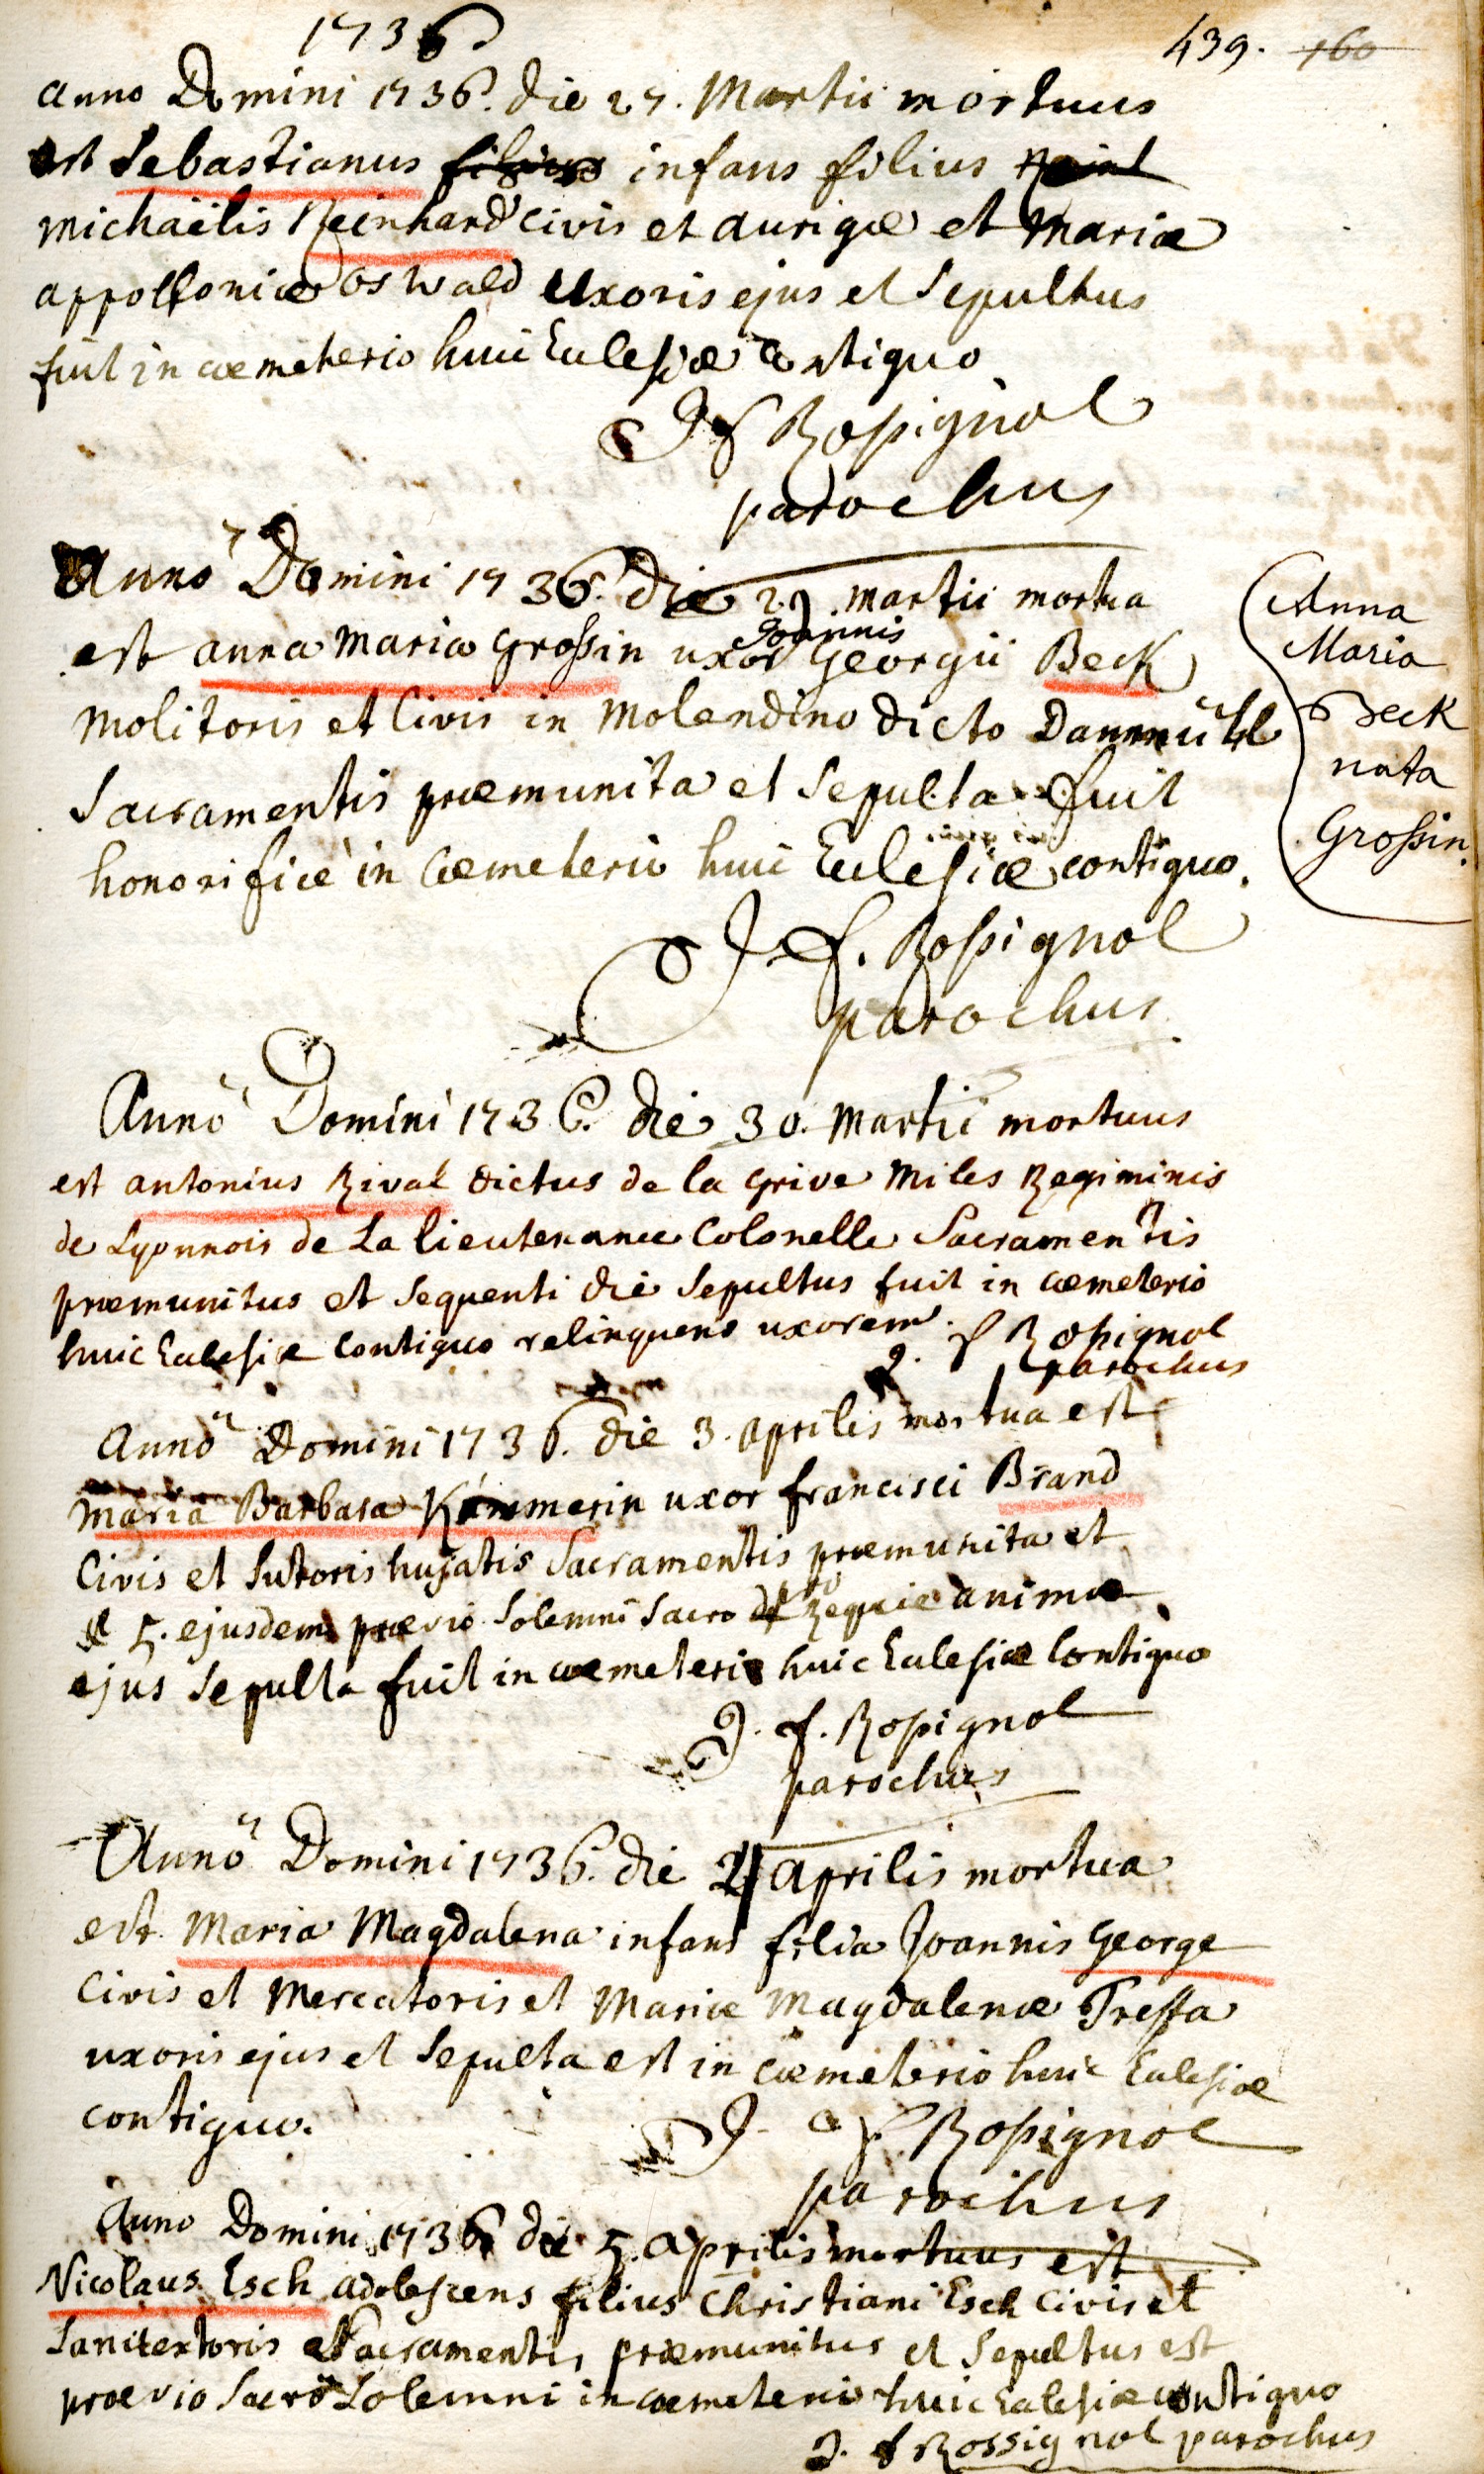 1736
439. 160
anno Domini 1736. die 27. Martii mortuus
est Sebastianus filius infans filius Reinh
michaëlis Reinhard civis et aurigæ et mariæ
appolloniæ oswald uxoris ejus et Sepultus
fuit in cœmeterio huic Eclesiæ contiguo
J f Rossignol
parochus
Anno Domini 1736. die 29. martii mortua
est anna maria Grossin uxor Joannis Georgii Beck
molitoris et Civis in molendino dicto Dannmühl
Sacramentis præmunita et Sepulta fuit
honorificè in Cœmeterio huic Eclesiæ contiguo.
Anna
Maria
Beck
nata
Grossin.
J. f. Rossignol
parochus
Anno Domini 1736. die 30. Martii mortuus
est antonius Rival dictus de la Grive Miles Regiminis
de Lyonnois de La lieutenance Colonelle Sacramentis
præmunitus et sequenti die Sepultus fuit in cœmeterio
huic Eclesiæ contiguo relinquens uxorem.
J. f Rossignol
parochus
Anno Domini 1736. die 3. aprilis mortua est
maria Barbara Kammerin uxor francisci Brand
Civis et Sutoris hujatis Sacramentis præmunita et
5. ejusdem prævio Solemni Sacro de Requie animæ
ejus Sepulta fuit in cœmeterio huic Eclesiæ Contiguo
J. f. Rossignol
parochus
Anno Domini 1736. die 4 aprilis mortua
est Maria Magdalena infans filia Joannis George
Civis et Mercatoris et Mariæ Magdalenæ Treffa
uxoris ejus et Sepulta est in cœmeterio huic Eclesiæ
contiguo.
J. f. Rossignol
parochus
Anno Domini 1736 die 5. Aprilis mortuus est
Nicolaus Esch adolescens filius Christiani Esch Civis et
Lanitextoris Sacramentis præmunitus et Sepultus est
prævio Sacro Solemni in cœmeterio huic Eclesiæ contiguo
J. f Rossignol parochus